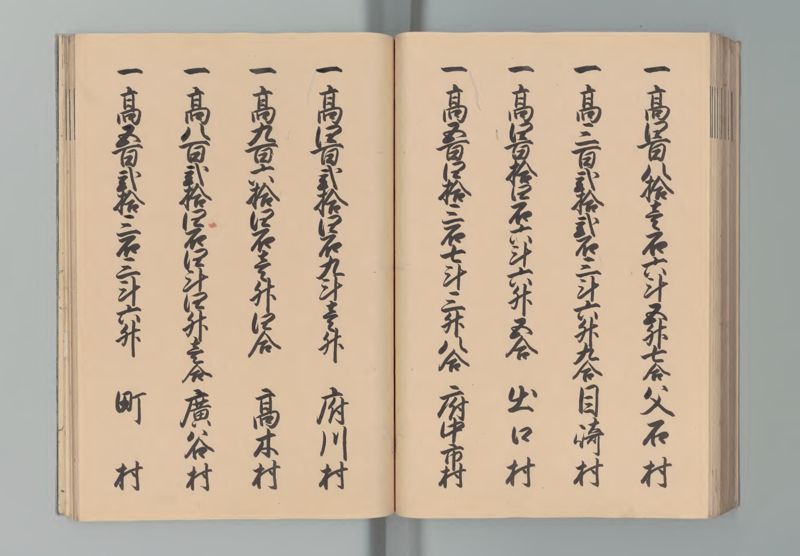 一高四百八拾壱石六斗五升七合父石村
一高三百弐拾弐石三斗六升九合目崎村
一高四百拾四石六斗六升五合出口村
一高五百四拾三石七斗三升八合府中市村
一高四百弐拾四石九斗壱升府川村
一高九百六拾四石壱升四合高木村
一高八百弐拾四石四斗四升壱合廣谷村
一高五百弐拾三石三斗六升町村